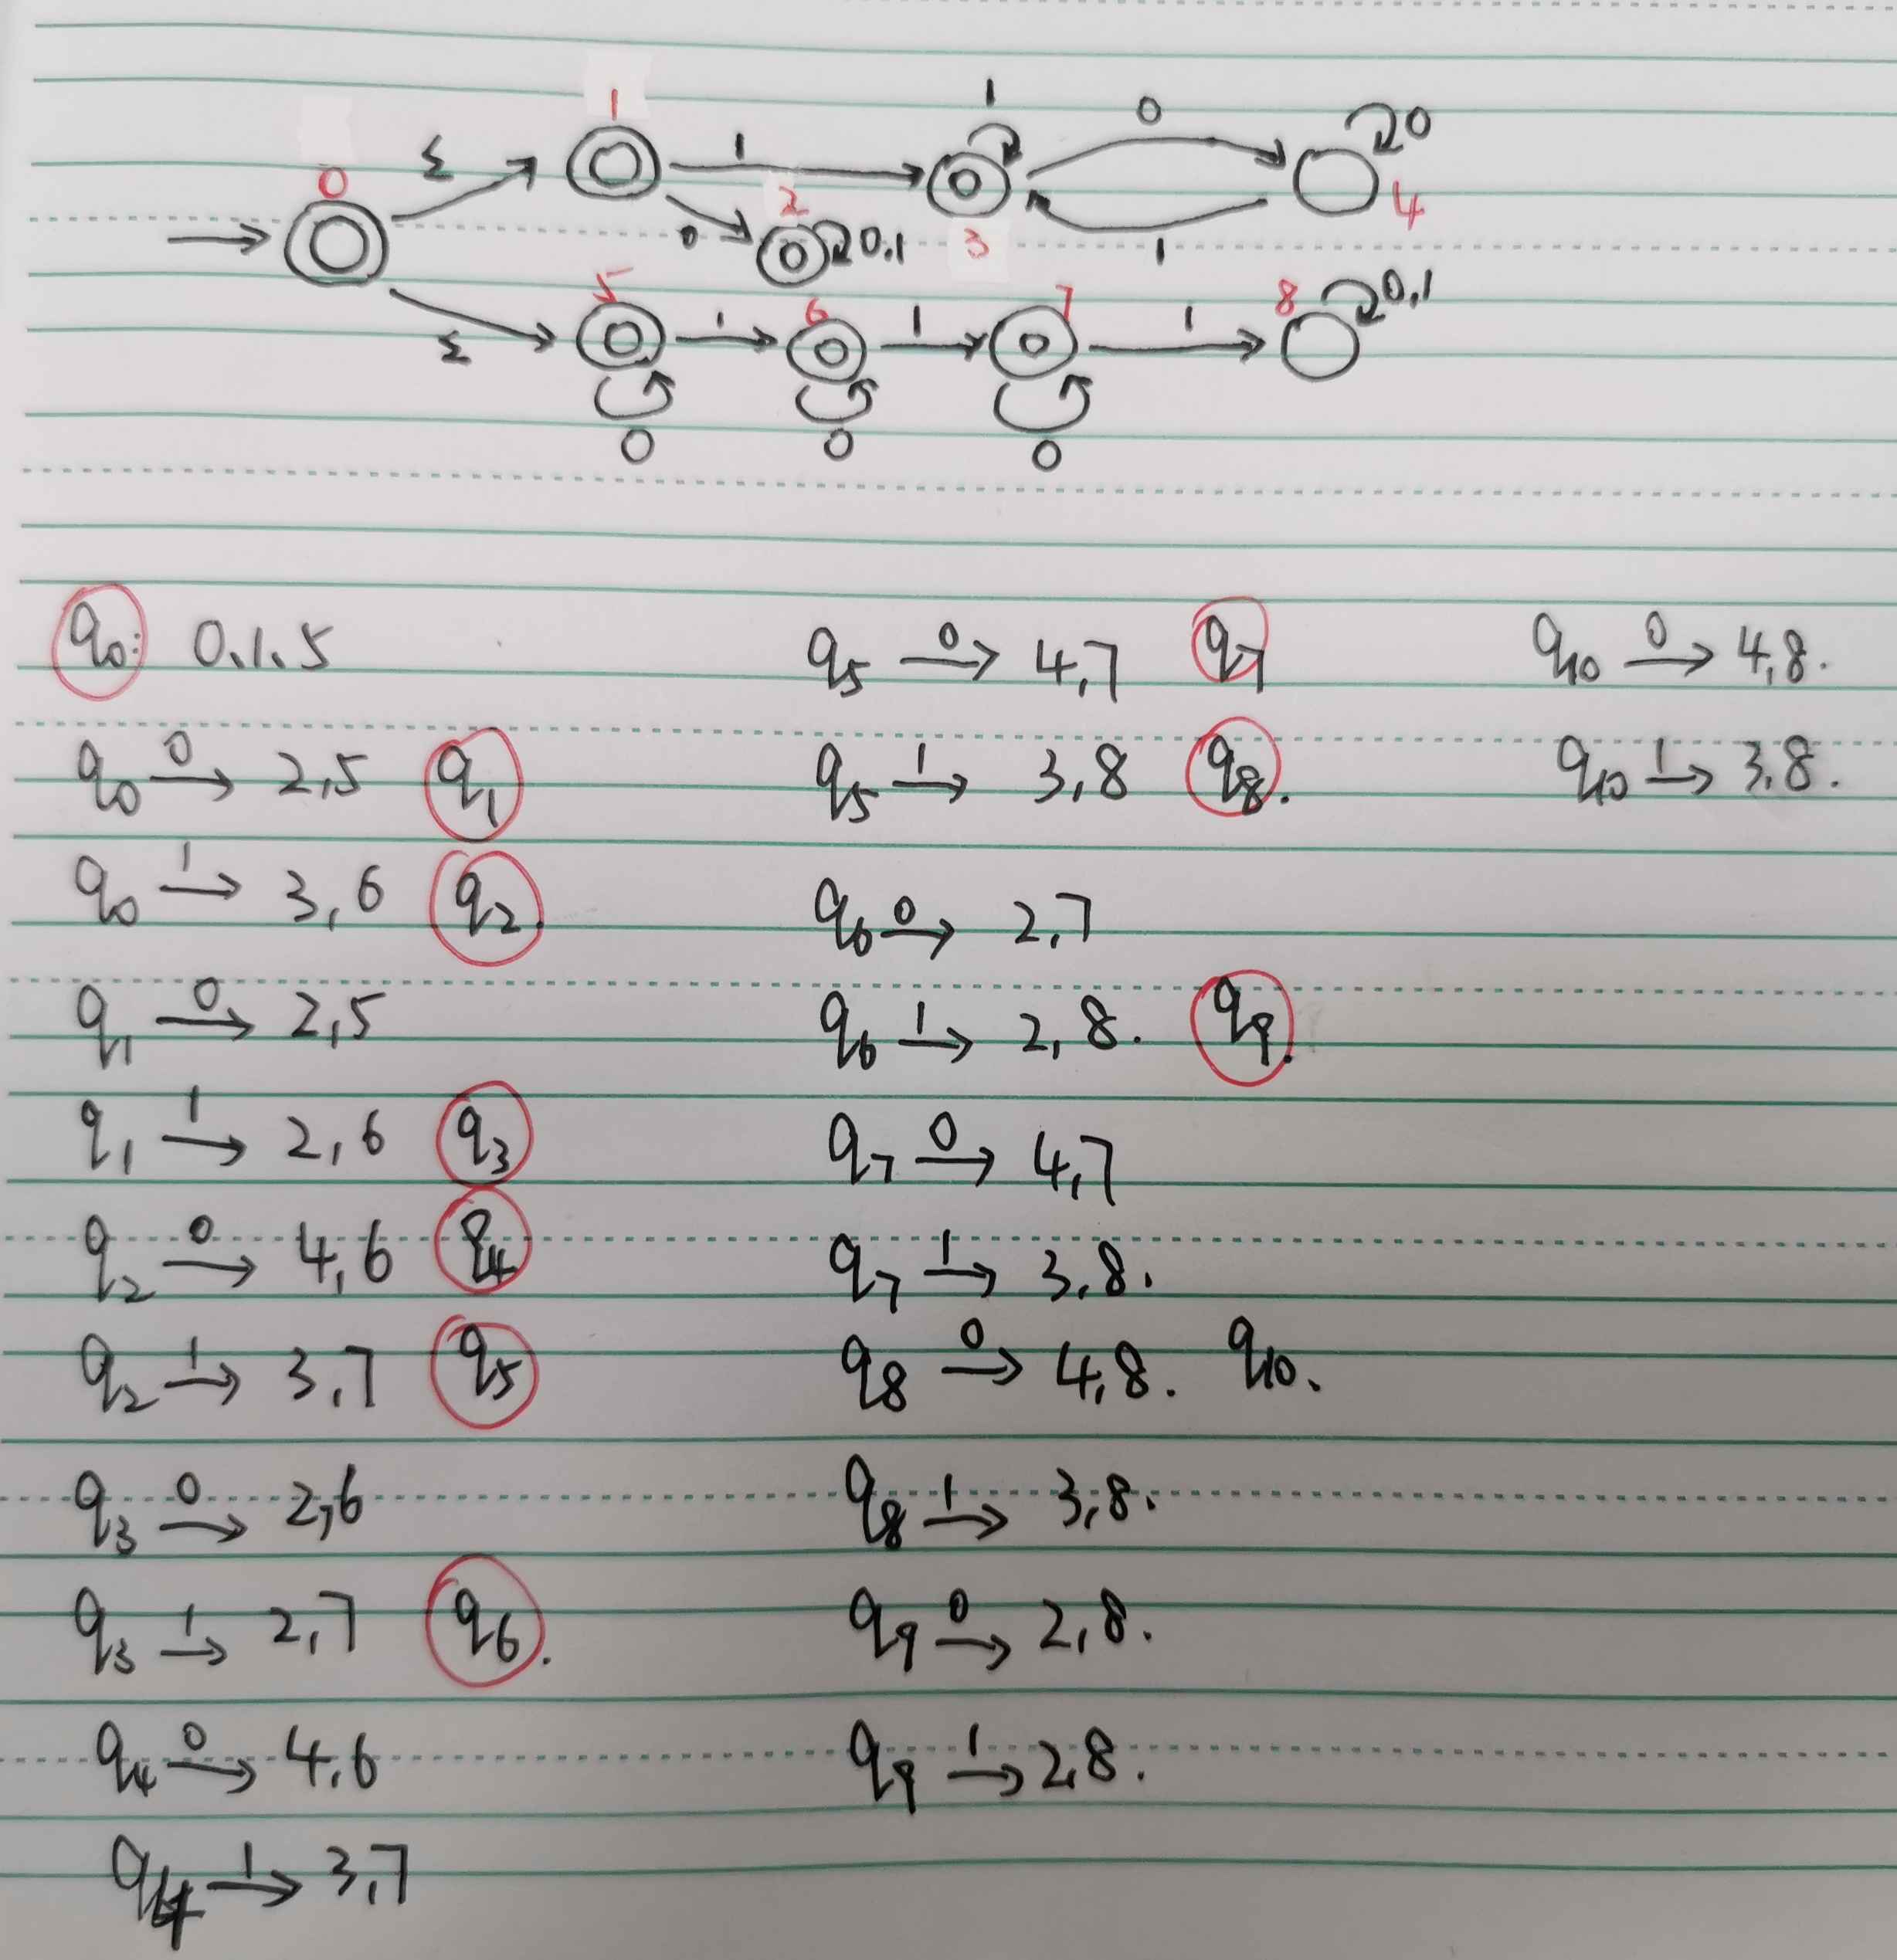 1
1
0
0
ε
1
2
0
0,1
3
1
4
0
ε
5
1
6
1
7
1
8
0,1
0
0
0
q0: 0,1,5
q0 0→ 2,5 q1
q0 1→ 3,6 q2.
q1 0→ 2,5
q1 1→ 2,6 q3
q2 0→ 4,6 q4
q2 1→ 3,7 q5
q3 0→ 2,6
q3 1→ 2,7 q6.
q4 0→ 4,6
q4 1→ 3,7
q5 0→ 4,7 q7
q5 1→ 3,8 q8.
q6 0→ 2,7
q6 1→ 2,8. q9.
q7 0→ 4,7
q7 1→ 3,8.
q8 0→ 4,8. q10.
q8 1→ 3,8.
q9 0→ 2,8.
q9 1→ 2,8.
q10 0→ 4,8.
q10 1→ 3,8.